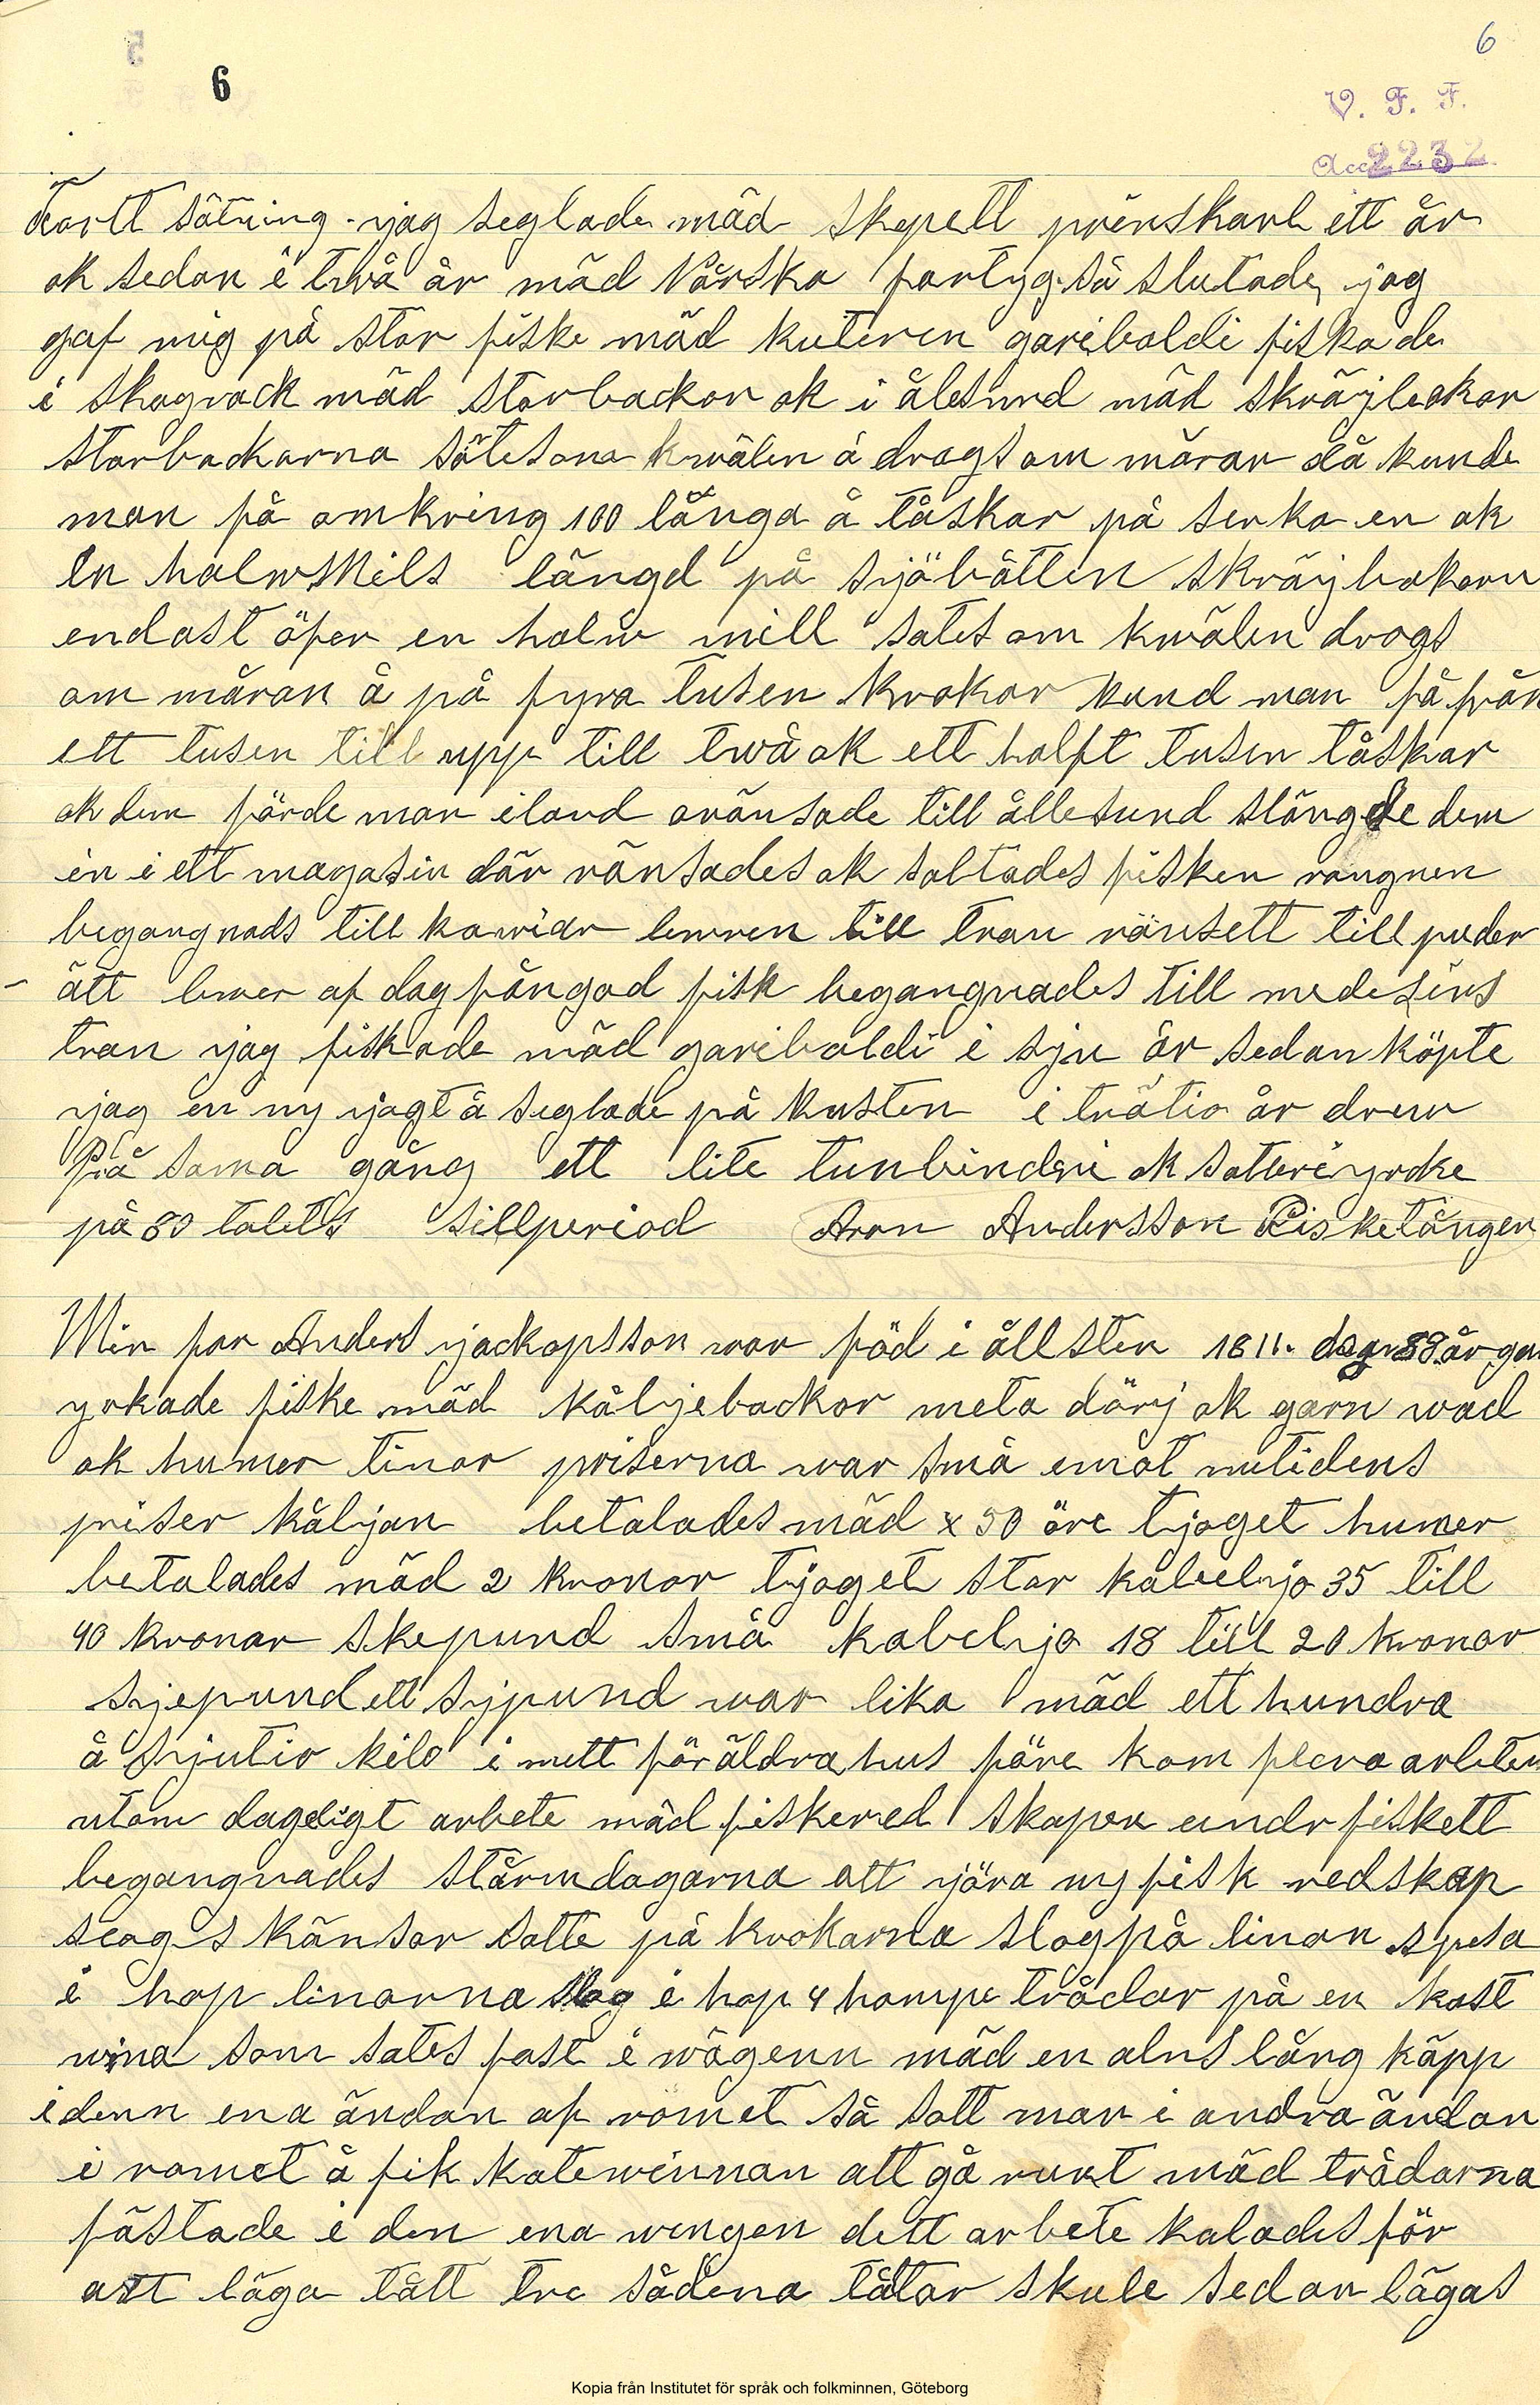 6
6
V. F. F.
Acc. 2232
kortt sätning. jag seglade mäd skepett prinskarl ett år
ok sedan i twå år mäd Nårska fartyg. så slutade jag
gaf mig på stor fiske mäd kuteren garibaldi fiskade
i skagrack mäd storbackor ok i ålesund mäd skräjbakor
storbackorna sätes ona kwälen å drogs om måran då kunde
man få omkring 100 långa å tåskar på serka en ok
en halwmils längd på sjöbåtten skräjbakorn
endast öfer en halw mill sates om kwälen drogs
om måran å på fyra tusen krokar kund man få från
ett tusen till upp till twå ok ett halft tusen tåskar
ok dem förde man iland oränsade till ållesund slängde dem
in i ett magasin där ränsades ok saltades fisken rangnen
begangnads till kawiar lewren till tran ränsett till puder
ått lewer af dagfångad fisk begangnades till medesins
tran jag fiskade mäd garibaldi i sju år sedan köpte
jag en ny jagt å seglade på kusten i trätio år drew
på sama gång ett lite tunbinderi ok salteriyrke
på 80 talets sillperiod Aron Andersson Fisketången
Min far Anders jackopsson war föd i ållsten 1811. dog 88 år gam
yrkade fiske mäd kåljebackor meta därj ok garn wad
ok humer tinor priserna war små emot nutidens
priser kåljan betalades mäd x 50 öre tjoget humer
betalades mäd 2 kronor tjoget stor kabeljo 35 till
40 kronar skepund små kabeljo 18 till 20 kronor
sjepund ett sjpund war lika mäd ett hundra
å sjutio kilo i mitt föräldrahus före kom flera arbeten
utom dageligt arbete mäd fiskered skapen undr fiskett
begangnades stårmdagarna att jöra ny fisk redskap
slogs känsor satte på krokarna slog på linan spesa
i hop linorna slog i hop 4 hampe trådar på en kast
wina som sates fast i wägenn mäd en alns lång käpp
i denn ena ändan af romet så satt man i andra ändan
i romet å fik katewinnan att gå runt mäd trådarna
fästade i den ena wengen dett arbete kalades för
att läga tått tre sådena tåttar skule sedan lägas
Kopia från Institutet för språk och folkminnen, Göteborg